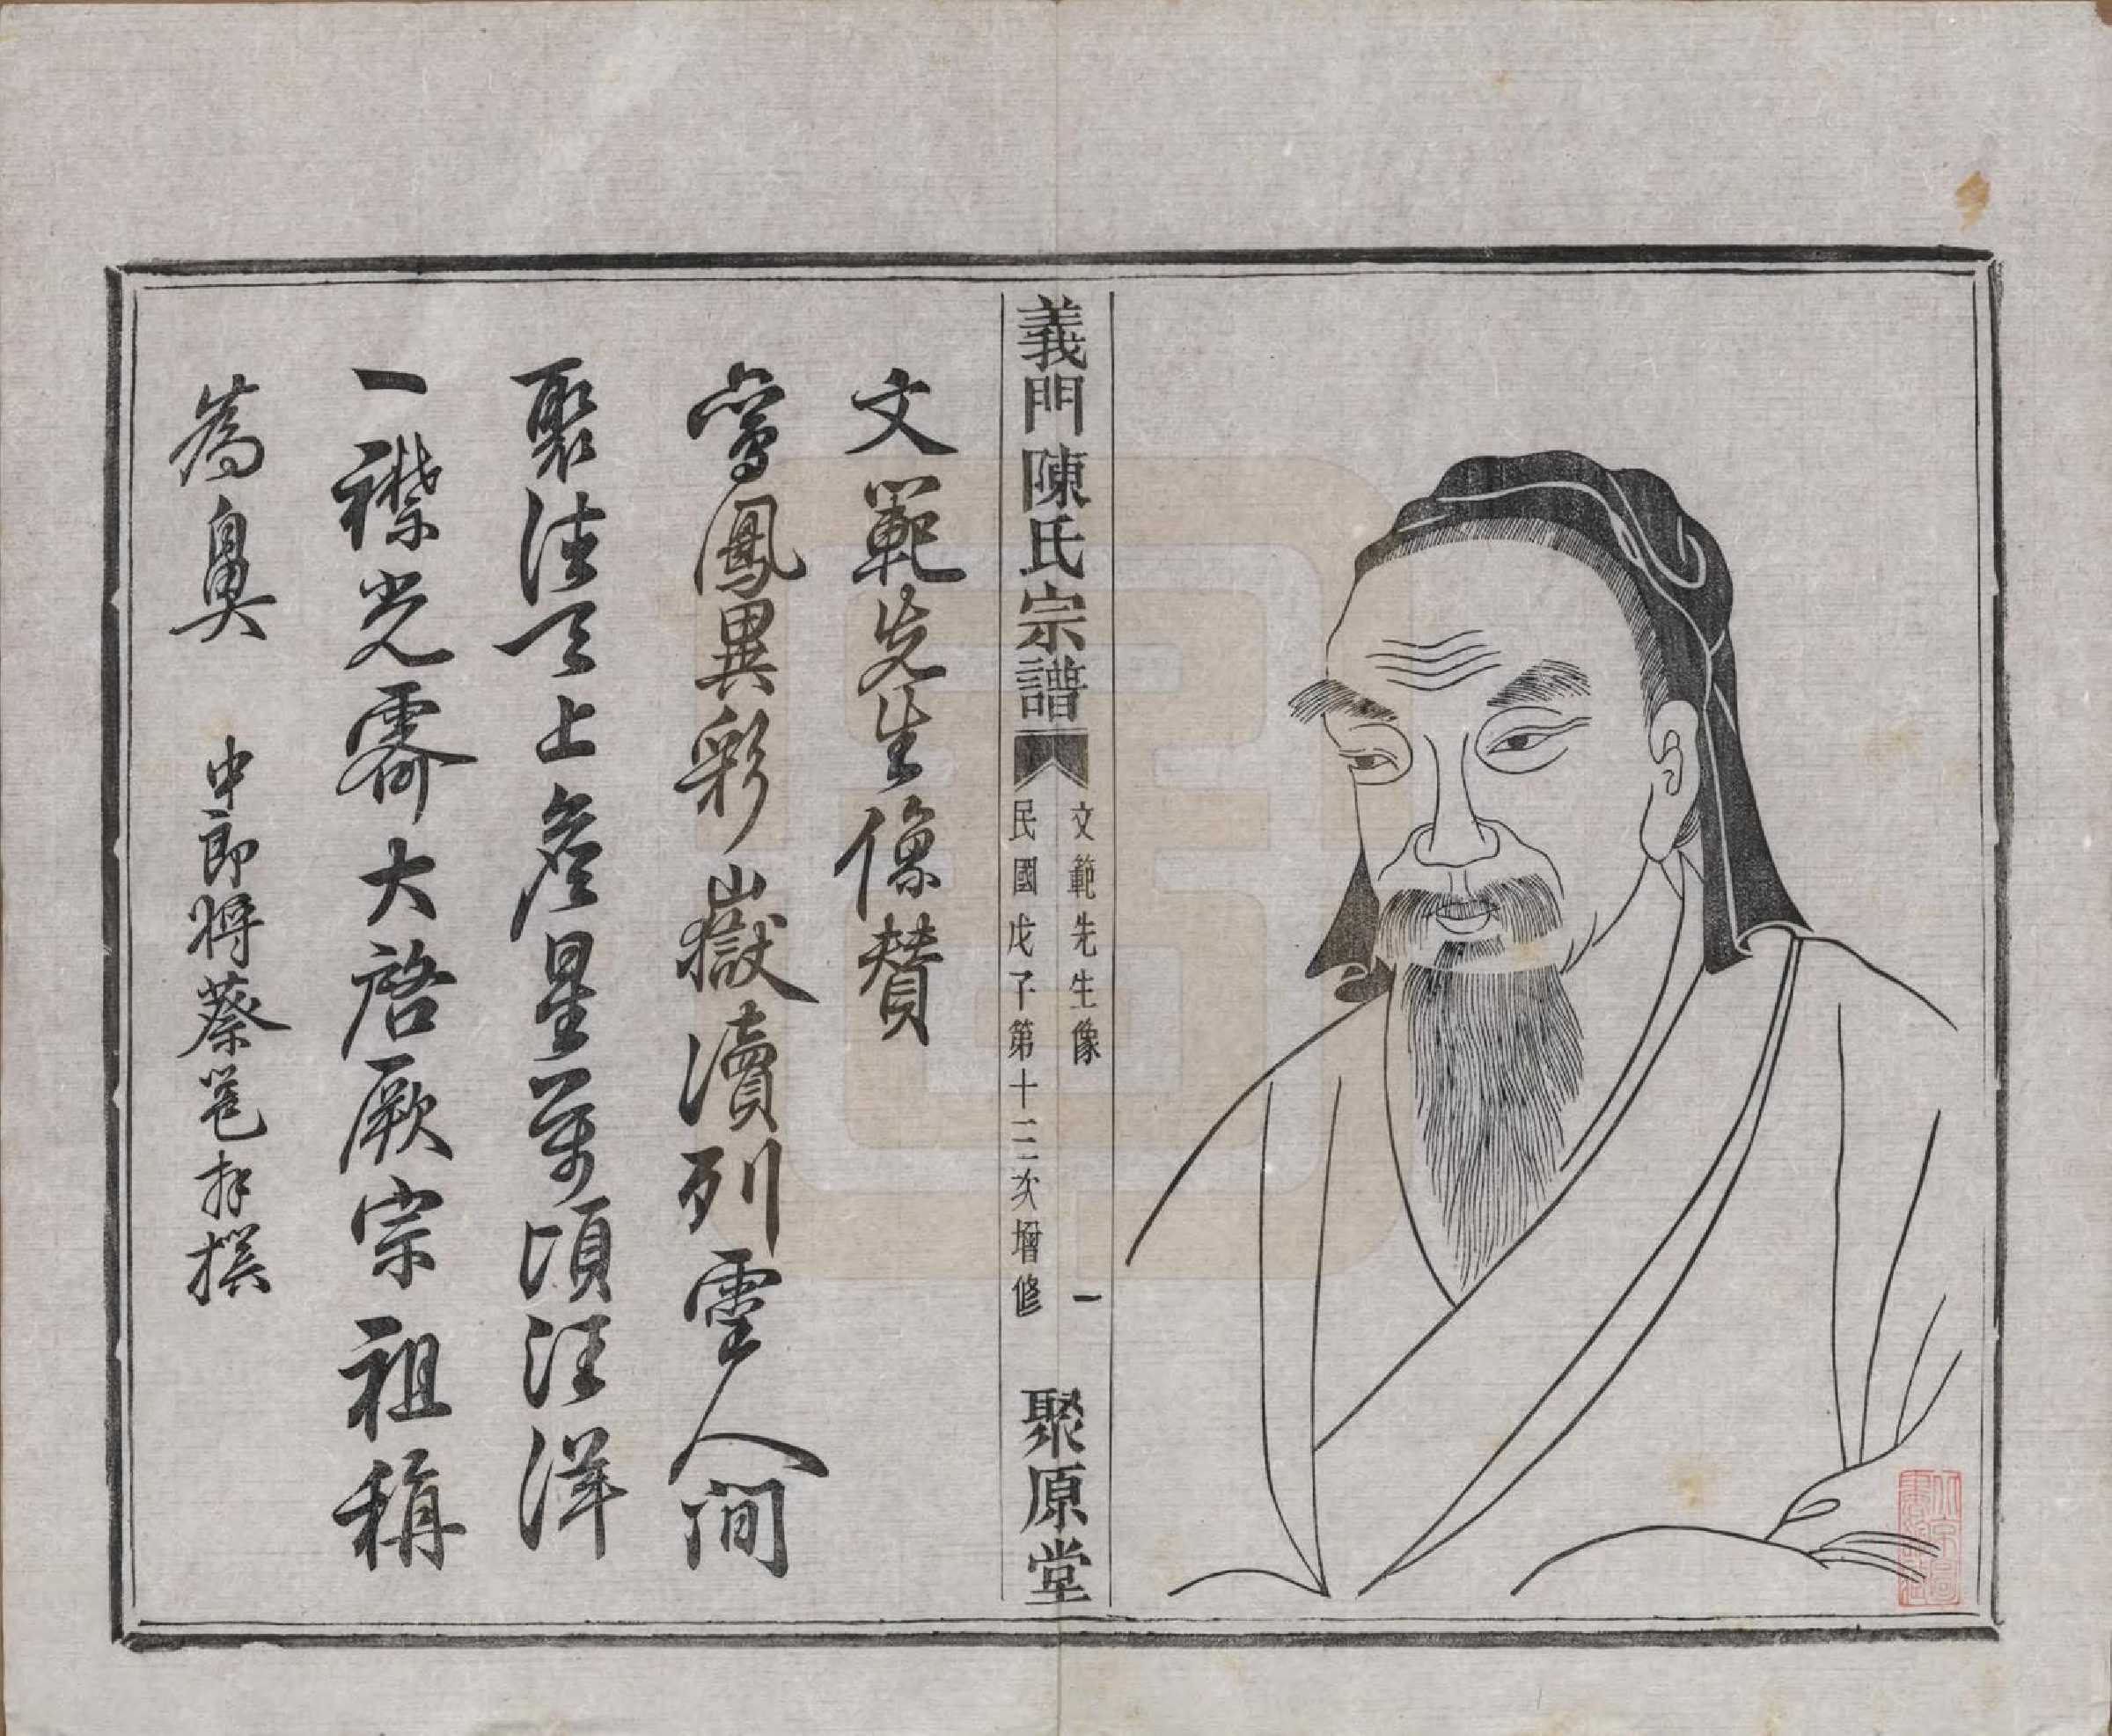 義門陳氏宗譜
文範先生像 一
民國戊子第十三次增修
聚原堂
文範先生像贊
鳳異彩嶽瀆列靈人間
聚天上星萬頃汪洋
一襟光霽大啓厥宗祖稱
為鼻 中郎將蔡邕拜撰